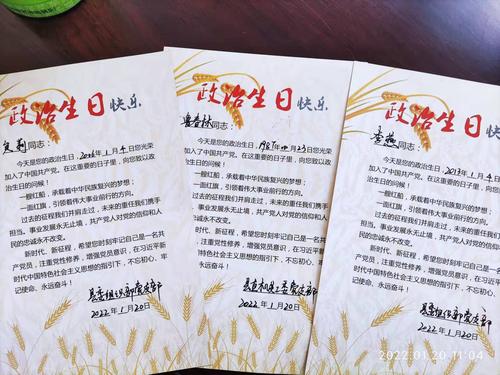 政治生日快乐
同志：
今天是您的政治生日，2006年1月4日您光荣
加入了中国共产党。在这重要的日子里，向您致以政
治生日的问候！
一艘红船，承载着中华民族复兴的梦想；
一面红旗，引领着伟大事业前行的方向。
过去的征程我们并肩走过，未来的重任我们携手
担当。事业发展永无止境，共产党人对党的信仰和人
民的忠诚永不改变。
新时代、新征程，希望您时刻牢记自己是一名共
产党员，注重党性修养，增强党员意识，在习近平新
时代中国特色社会主义思想的指引下，不忘初心、牢
记使命、永远奋斗！
县委组织部党支部
2022年1月20日
政治生日快乐
同志：
今天是您的政治生日，1987年 月23日您光荣
加入了中国共产党。在这重要的日子里，向您致以政
治生日的问候！
一艘红船，承载着中华民族复兴的梦想；
一面红旗，引领着伟大事业前行的方向。
过去的征程我们并肩走过，未来的重任我们携手
担当。事业发展永无止境，共产党人对党的信仰和人
民的忠诚永不改变。
新时代、新征程，希望您时刻牢记自己是一名共
产党员，注重党性修养，增强党员意识，在习近平新
时代中国特色社会主义思想的指引下，不忘初心、牢
记使命、永远奋斗！
县直机关工委党支部
2022年1月20日
政治生日快乐
李燕同志：
今天是您的政治生日，2013年1月4日
加入了中国共产党。在这重要的日子里，向您
治生日的问候！
一艘红船，承载着中华民族复兴的梦想；
一面红旗，引领着伟大事业前行的方向。
过去的征程我们并肩走过，未来的重任我
担当。事业发展永无止境，共产党人对党的信
民的忠诚永不改变。
新时代、新征程，希望您时刻牢记自己是
产党员，注重党性修养，增强党员意识，在习
时代中国特色社会主义思想的指引下，不忘初
记使命、永远奋斗！
县委组织部党支部
2022年1月20日
2022.01.20 11:04